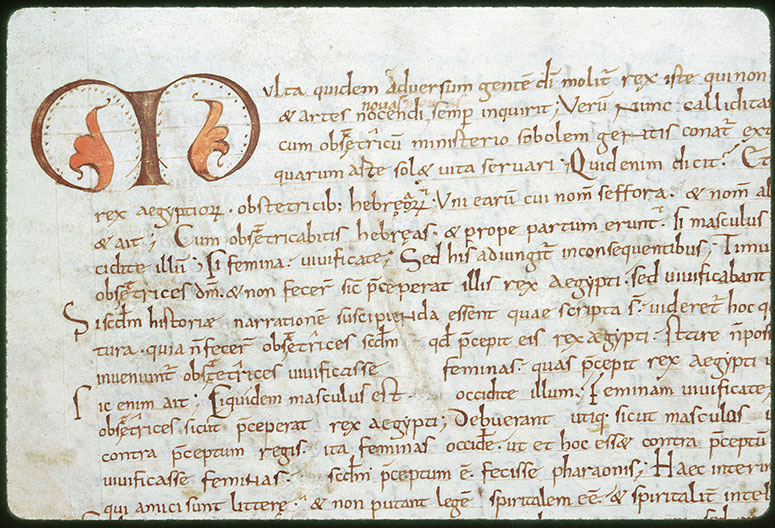 Multa quidem adversum gentē dī molit̄ rex iste qui non
& artes nocendi novas semp inquirit; Verū nunc callidita
cum obsęt̄ricū ministerio sobolem gentis conat̄ ext
quarum aste sol& vita servari; Quid enim dicit? Et
rex aegyptiorꝝ. obstetricib; hebręorꝝ. Uni earū cui nom̄ seffora. & nom̄ al
& ait; Cum obsętricabitis hebręas. & prope partum erunt. si masculus
cidite illū; Si femina. vivificate; Sed his adiungit̄ inconsequentibus; Timu
obsętrices dm̄. & non fecer̄ sic̄ p̄ceperat illis rex aegypti. sed vivificabant
Si scdm̄ historiae narrationē suscipienda essent quae scripta s̄. videret̄ hoc q
tura. quia n̄ fecer̄ obsętrices scdm̄ qd̄ p̄cepit eis rex aegypti.
inveniunt̄ obsętrices vivificasse feminas. quas p̄cepit rex aegypti
Sic enim ait; Siquidem masculus est occidite illum. Feminam vivificate;
obsętrices. sicut p̄ceperat rex aegypti; Debuerant utiq; sicut masculos
contra p̄ceptum regis. ita feminas occidere. ut et hoc essæ contra p̄ceptū
vivificasse feminas. scdm̄ p̄ceptum ē. fecisse pharaonis; Haec interim
qui amici sunt litterę. & non putant legē spiritalem eē. & spiritalit̄ intel